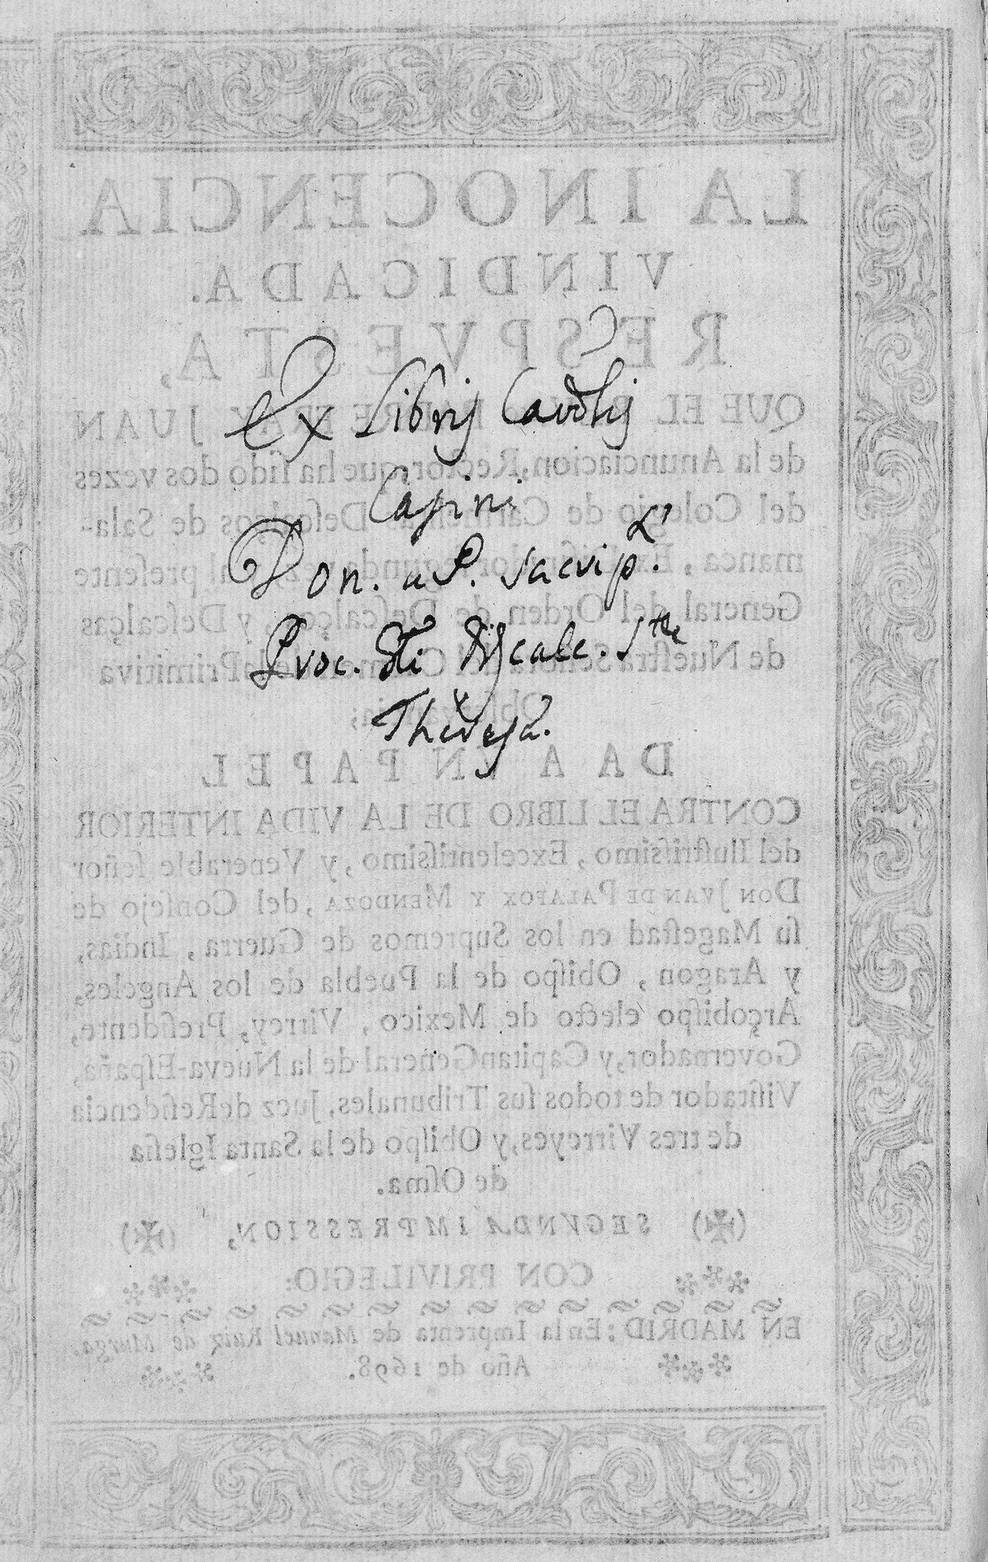 LA INOCENCIA
VINDICADA.
RESPVESTA,
Ex Libris Caroli
Don. a P.
Proc. Discalc. Sthe
Theresa.
QUE EL JUAN
de la Anunciacion, Rector que ha sido dos vezes
del Colegio de Carmelitas Descalços de Sala-
manca, segunda presente
General del Orden de Descalços, y Descalças
de Nuestra Señora del de la Primitiva
DA A VN PAPEL
CONTRA EL LIBRO DE LA VIDA INTERIOR
del Ilustrissimo, Excelentissimo, y Venerable señor
DON JVAN DE PALAFOX Y MENDOZA, del Consejo de
su Magestad en los Supremos de Guerra, Indias,
y Aragon, Obispo de la Puebla de los Angeles,
Arçobispo electo de Mexico, Virrey, Presidente,
Governador, y Capitan General de la Nueva-España,
Visitador de todos sus Tribunales, Juez de Residencia
de tres Virreyes, y Obispo de la Santa Iglesia
de Osma.
SEGVNDA IMPRESSION,
CON PRIVILEGIO:
EN MADRID: En la Imprenta de Manuel Ruiz de Murga.
Año de 1698.